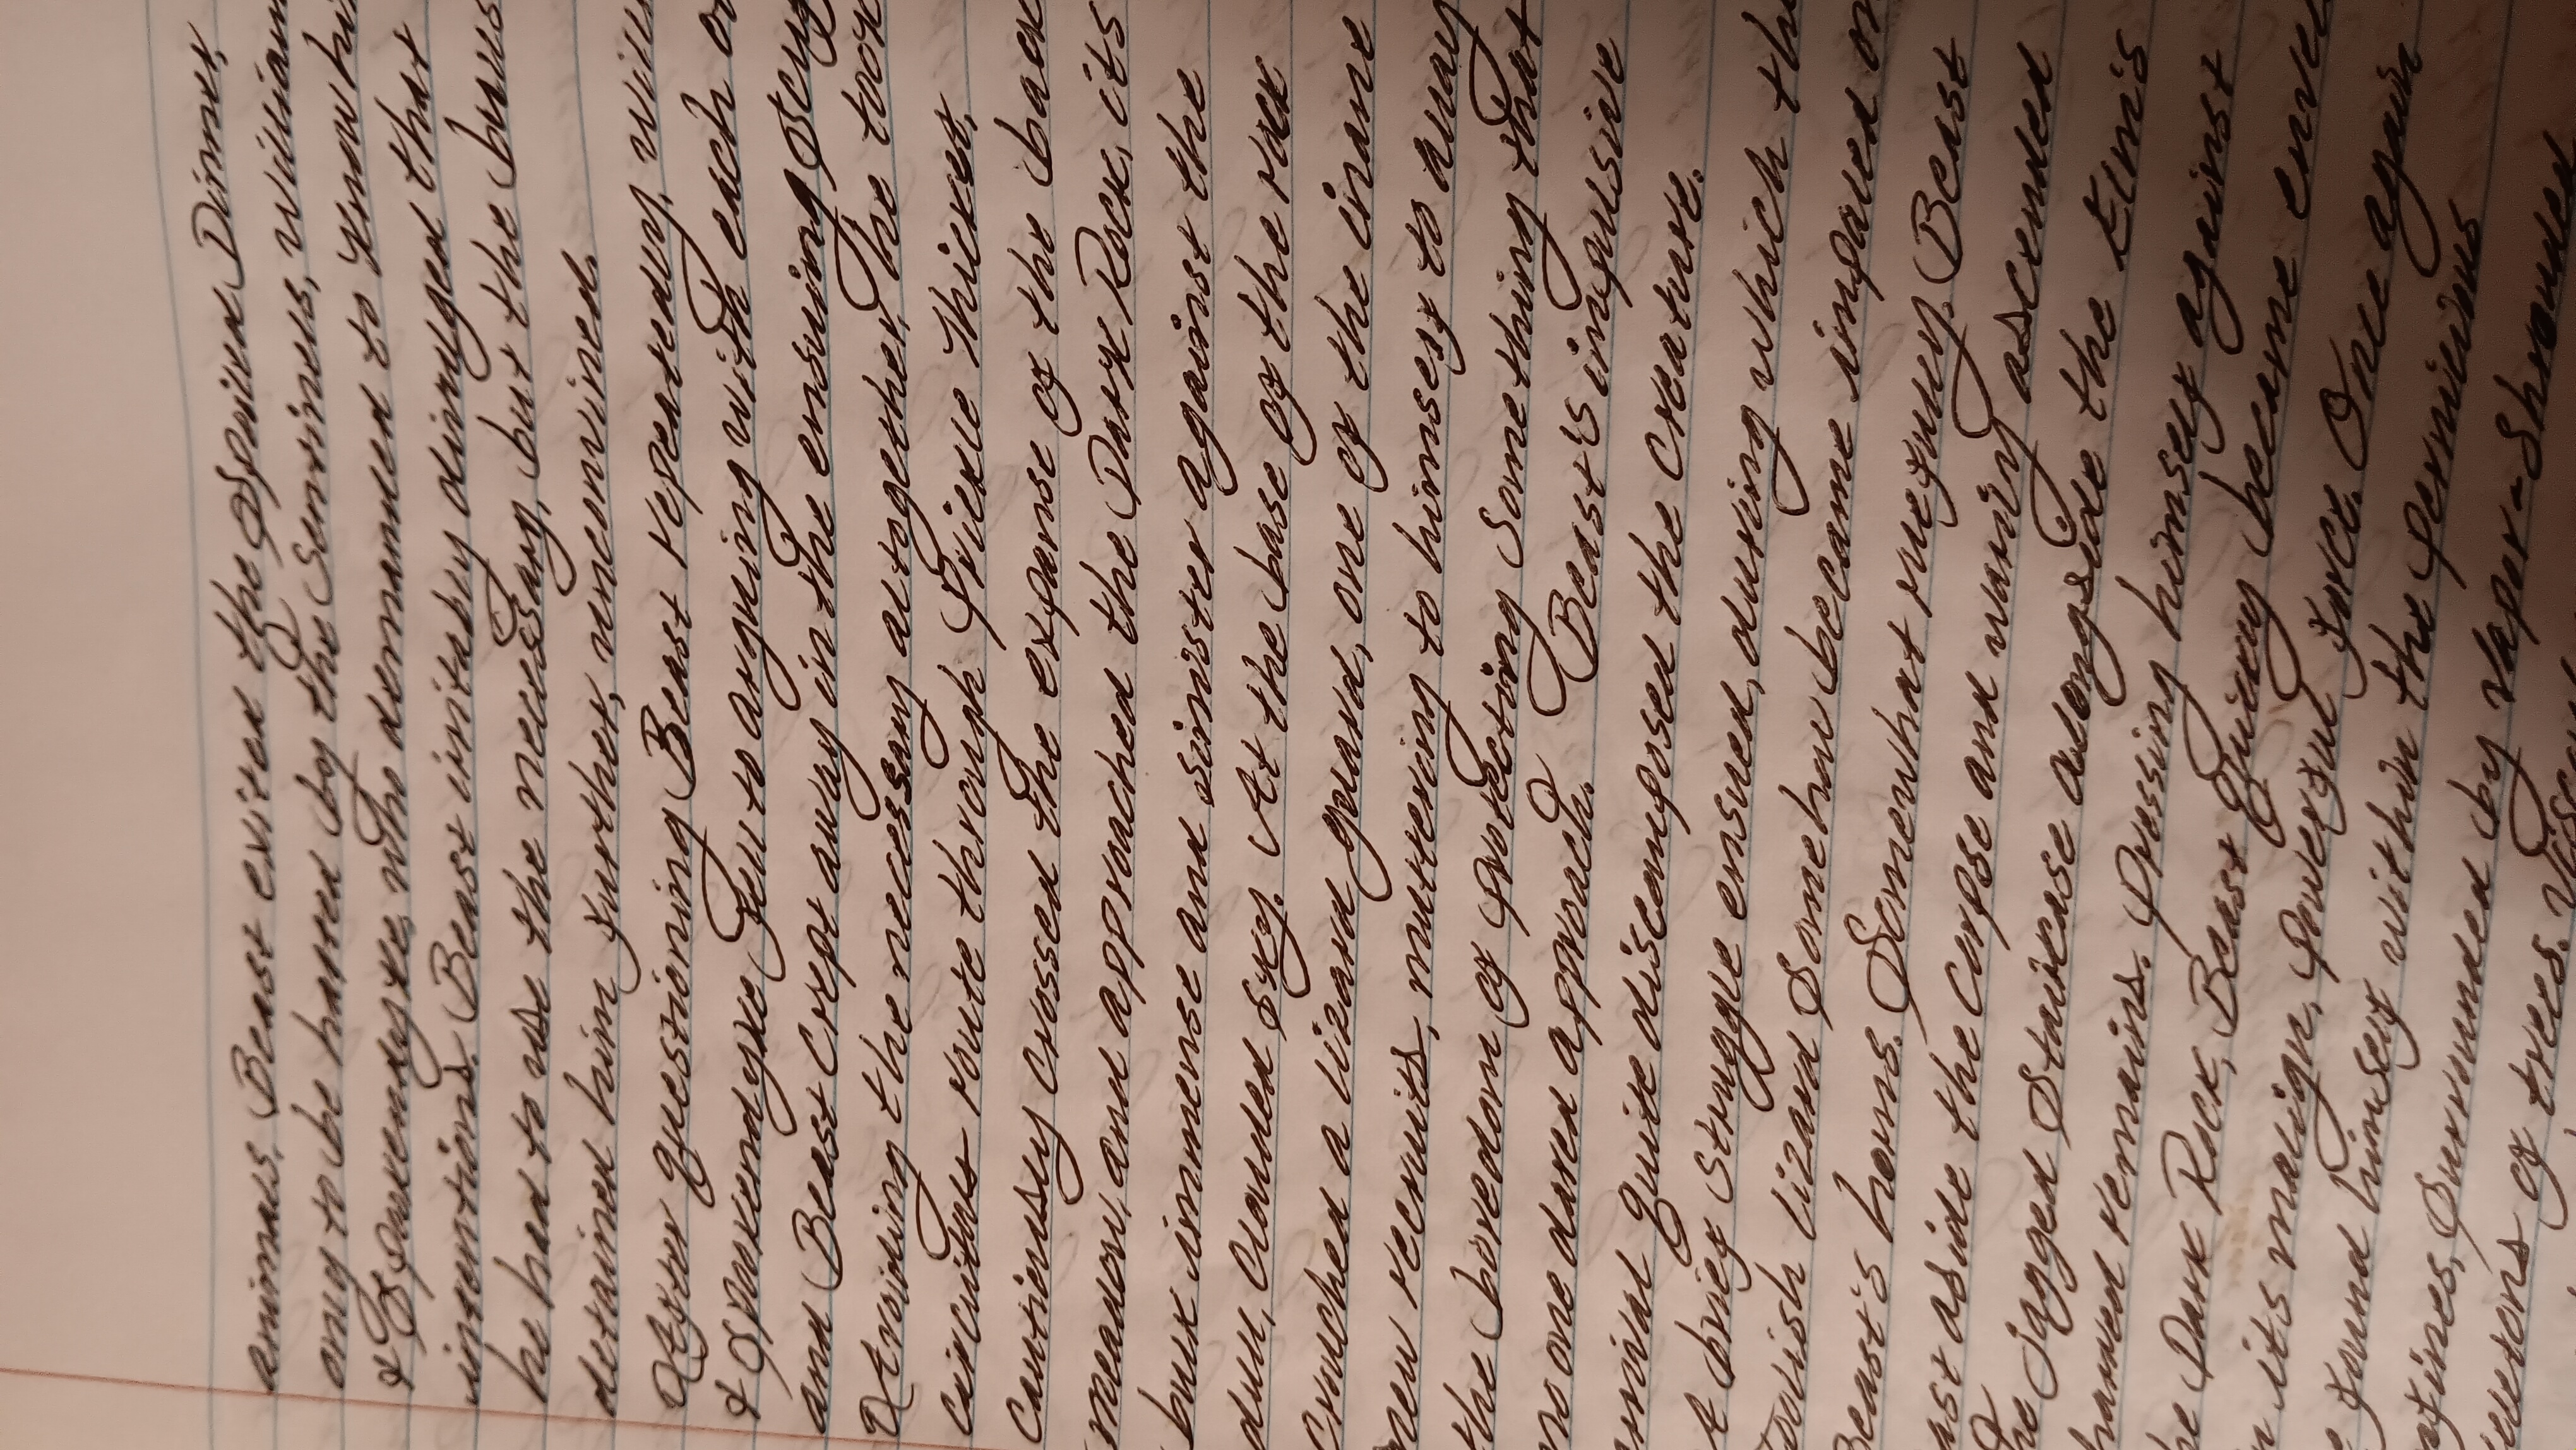 animals, Beast exited the Spiked Dimet,
only to be halted by the Sentries, William
& Sparendyke, who demanded to know hi
intentions. Beast irritably divulged that
he had to use the necessary, but the brus
detained him further, unconvinced.
After questioning Beast repeatedly, Will
& Sparendyke fell to arguing with each o
and Beast crept away in the ensuing
Avoiding the necessary altogether, he took
circuitous route through prickle thicket,
cautiously crossed the expanse of the black
meadow, and approached the Dark Rock, its
bulk immense and sinister against the
dull, clouded sky. At the base of the rock
crouched a lizard guard, one of the inane
new recruits, muttering to himself to allay
the boredom of protecting something that
no one dared approach. Beast's impulsive
arrival quite discomposed the creature.
A brief struggle ensued, during which th
foolish lizard somehow became impaled on
Beast's horns. Somewhat ruefully, Beast
cast aside the corpse and warily ascended
the jagged staircase alongside the Elm's
charred remains. Pressing himself against
the Dark Rock, Beast quickly became envel
in its malign, powerful force. Once again
he found himself within the pernicious
confines, surrounded by vapor-shrouded
skeletons of trees.